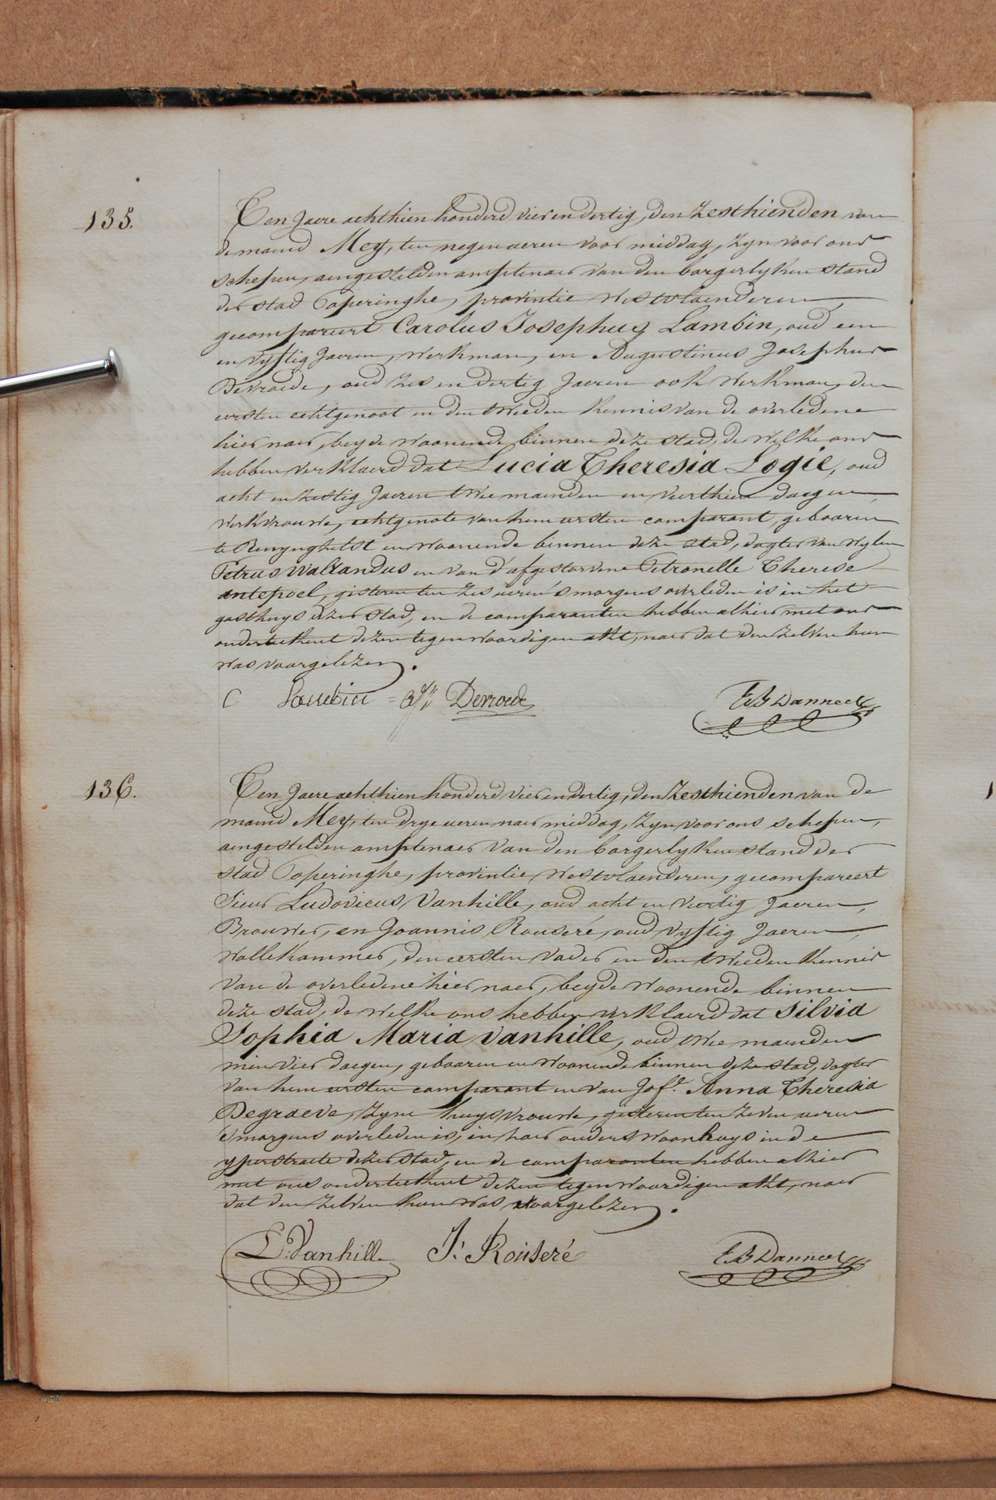 135.
Ten Jaere achthien honderd vier en dertig, den zesthienden van
de maend Mey, ten negen ueren voor middag, zyn voor ons
schepen, aengestelden amptenaer van den borgerlyken stand
der stad Poperinghe, provintie Westvlaenderen,
gecompareert Carolus Josephus Lambin, oud een
en vyftig Jaeren, werkman, en Augustinus Josephus
Devroede, oud zes en dertig Jaeren ook werkman, den
eersten echtgenoot en den tweeden kennis van de overledene
hier naer, beyde woonende binnen deze stad, de welke ons
hebben verklaerd dat Lucia Theresia Logie, oud
acht en zestig Jaeren twee maenden en veerthien daegen,
werkvrouwe, echtgenote van hem eersten comparant, gebooren
te Renynghelst en woonende binnen deze stad, dogter van wylen
Petrus Wallandus en van d'afgestorvene Petronelle Therese
antepoel, gisteren ten zes ueren s'morgens overleden is in het
gasthuys dezer stad, en de comparanten hebben alhier met ons
onderteekent dezen tegenwoordigen akt, naer dat den zelven hun
was voorgelezen.
C Lambin = Devroede FB Danneel
136.
Ten Jaere achthien honderd vier en dertig, den zesthienden van de
maend Mey, ten drye ueren naer middag, zyn voor ons schepen,
aengestelden amptenaer van den borgerlyken stand der
stad Poperinghe, provintie Westvlaenderen, gecompareert
Sieur Ludovicus Vanhille, oud acht en veertig Jaeren,
Brouwer, en Joannis Rouseré, oud vyftig Jaeren,
wollekammer, den eersten vader en den tweeden kennis
van de overledene hier naer, beyde woonende binnen
deze stad, de welke ons hebben verklaerd dat Silvia
Sophia Maria Vanhille, oud twee maenden
min vier daegen, gebooren en woonende binnen deze stad, dogter
van hem eersten comparant en van Jofe. Anna Theresia
Degraeve, zyne huysvrouwe, gisteren ten zeven ueren
s'morgens overleden is, in haer ouders woonhuys in de
yperstraete dezer stad, en de comparanten hebben alhier
met ons onderteekent dezen tegenwoordigen akt, naer
dat den zelven hun was voorgelezen.
L: Vanhille J: Rouseré FB Danneel